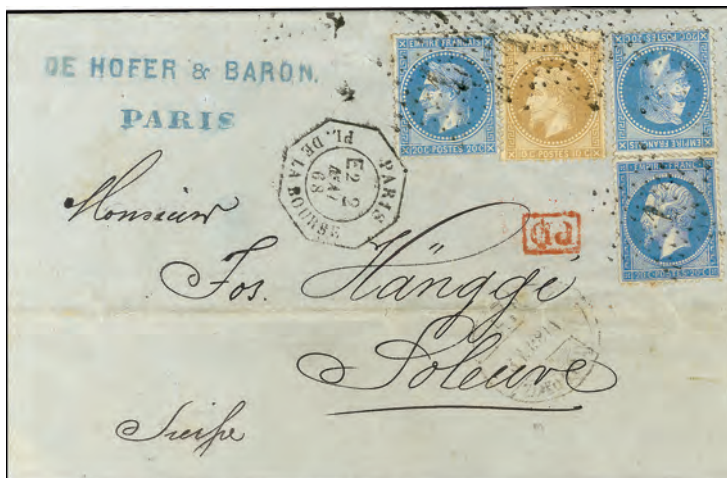 DE HOFER & BARON.
PARIS
EMPIRE FRANÇAIS
20 C POSTES 20 C
10 C POSTES 10 C
20 C POSTES 20 C
EMPIRE FRANÇAIS
EMPIRE FRANC
20 C POSTES 20 C
PARIS
E2 2
MAI
68
PL. DE LA BOURSE
PD
Monsieur
Jos. Hänggé
Soleure
Suisse